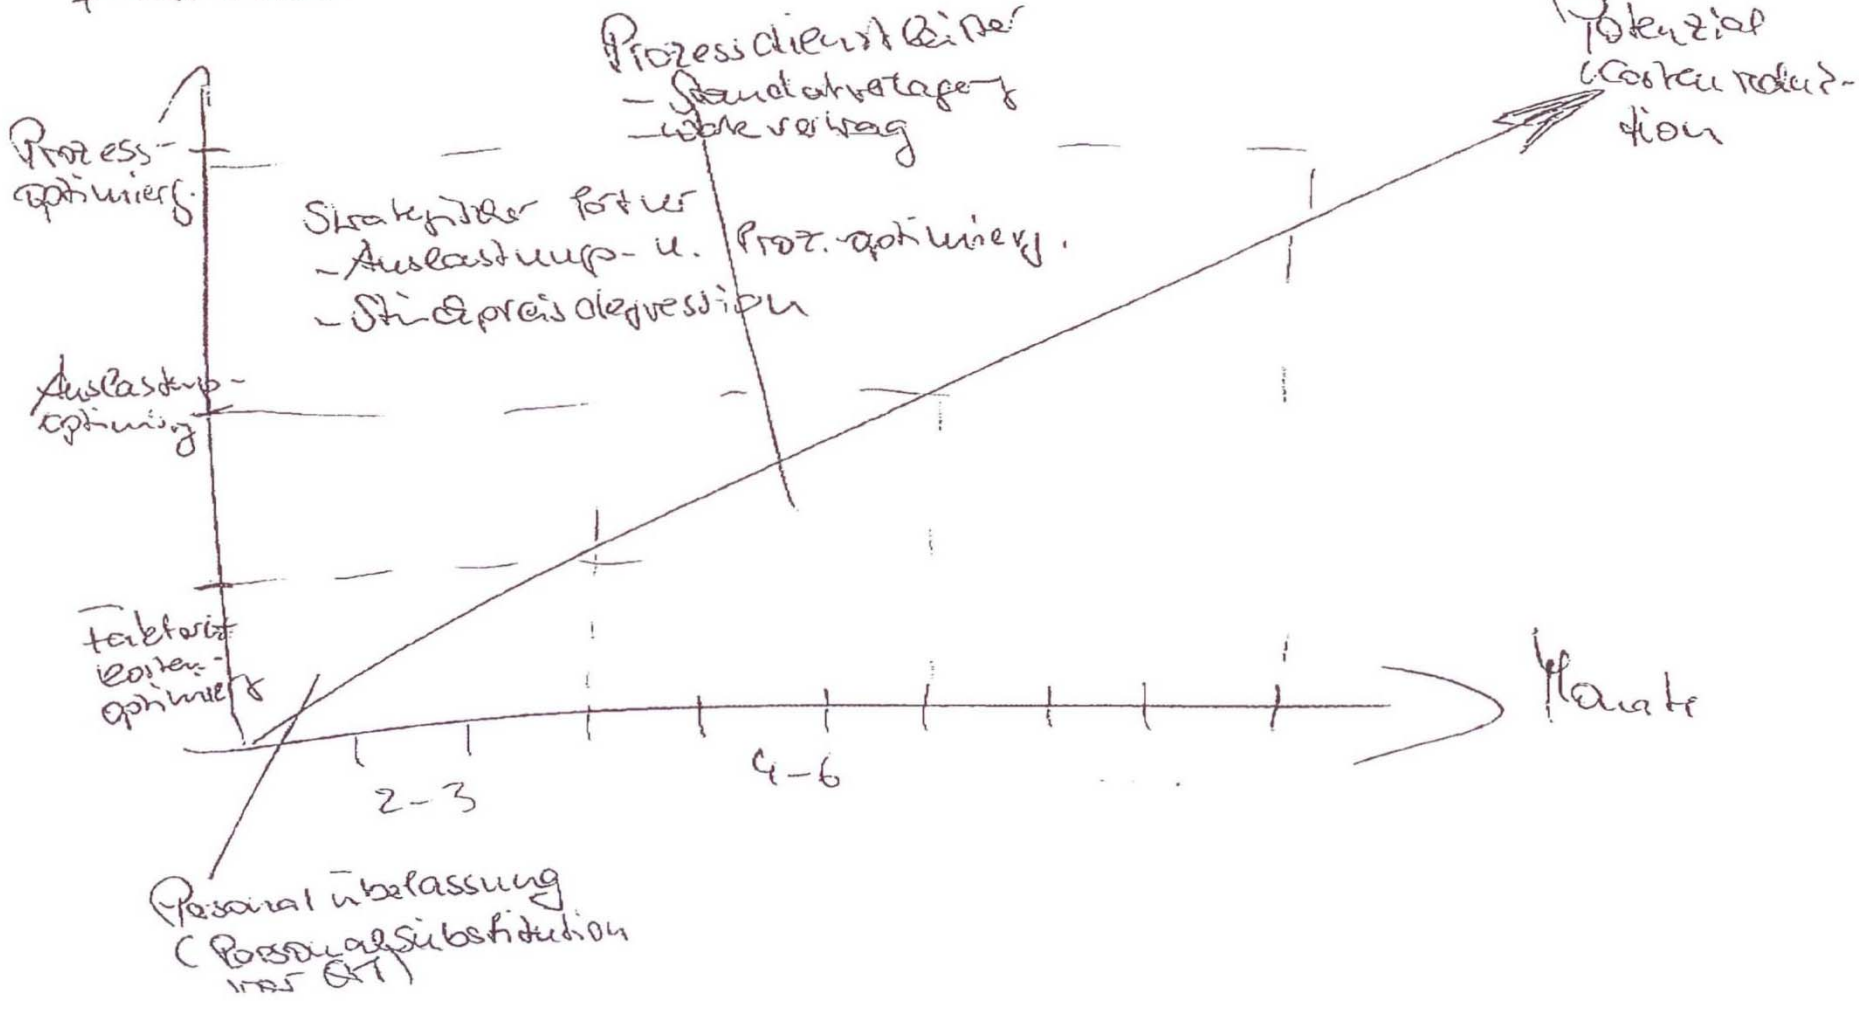 Prozessdienstleister
- Standortverlagerg
- Werkvertrag
Potenzial
(Kostenreduk-
tion
Prozess-
optimierg.
Strategischer Partner
- Auslastungs- u. Proz.-optimierg.
- Stückpreisdegression
Auslastungs-
optimierg
Faktor
kosten-
optimierg
Monate
2-3
4-6
....
Personalüberlassung
(Personalsubstitution